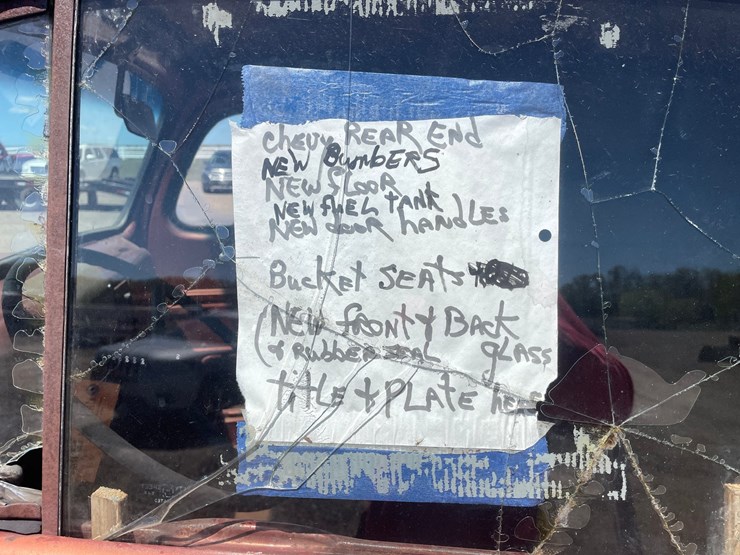 Chevy REAR End
NEW BumbERS
NEW fLOOR
NEW fUEL tANK
NEW dOOR hANdLES
BucKet SEAtS
(NEW fRONt & BAcK
& RubbER SEAL gLASS
titLE & PLAtE hERE